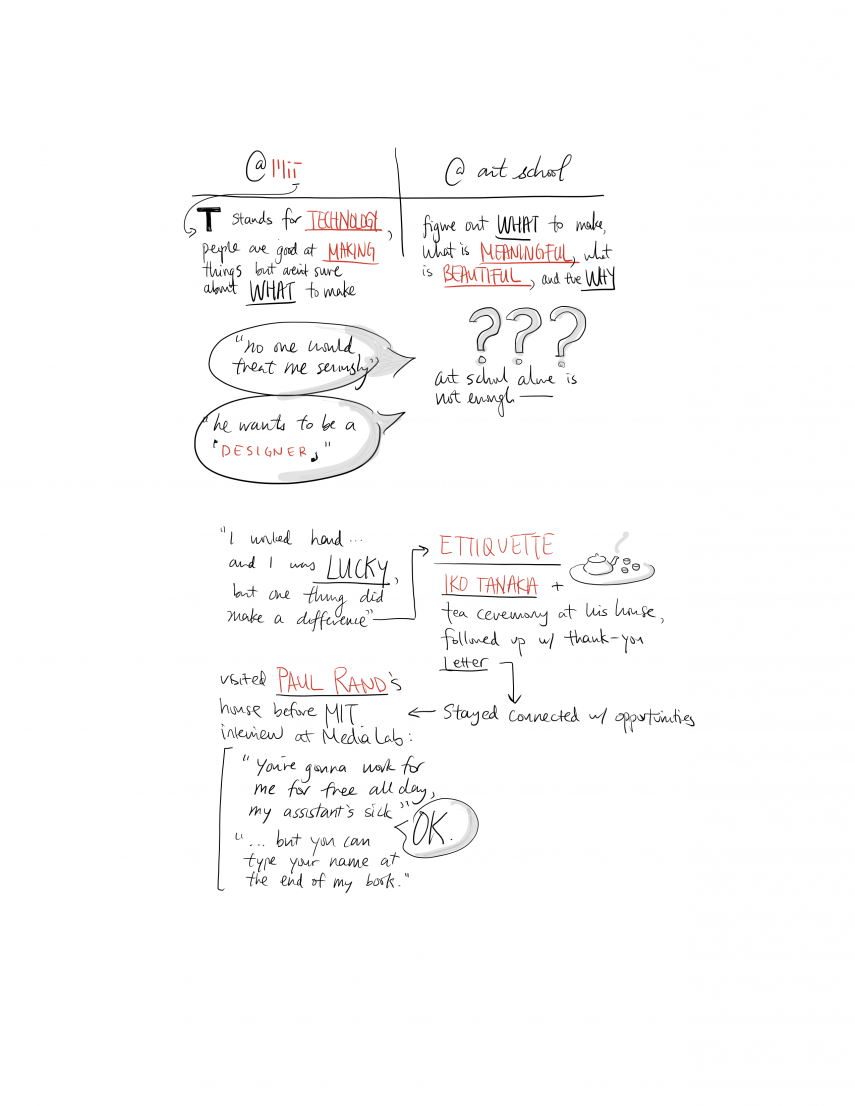 @MiT
T stands for TECHNOLOGY,
people are good at MAKING
things but aren't sure
about WHAT to make
@ art school
figure out WHAT to make,
what is MEANINGFUL, what
is BEAUTIFUL, and the WHY
"no one would
treat me seriously"
"he wants to be a
「DESIGNER」"
???
art school alone is
not enough —
"I worked hard...
and I was LUCKY,
but one thing did
make a difference"
ETTIQUETTE
IKO TANAKA +
tea ceremony at his house,
followed up w/ thank-you
Letter
Stayed connected w/ opportunities
visited PAUL RAND's
house before MIT
interview at MediaLab:
"You're gonna work for
me for free all day,
my assistant's sick"
OK.
"... but you can
type your name at
the end of my book."